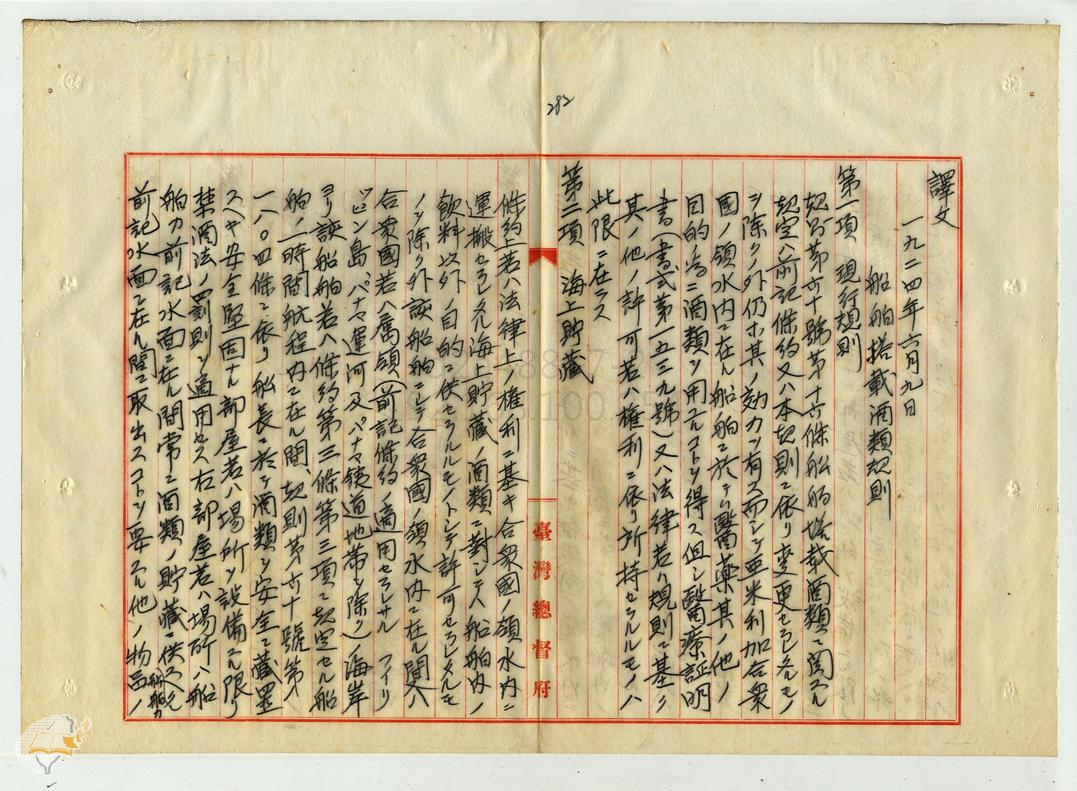 282
譯文
一九二四年六月九日
船舶搭載酒類規則
第一項 現行規則
規則第六十號第十六條船舶搭載酒類ニ関スル
規定ハ前記條約又ハ本規則ニ依リ変更セラレタルモノ
ヲ除クノ外仍ホ其ノ効力ヲ有ス而シテ亜米利加合衆
國ノ領水内ニ在ル船舶ニ於テ醫藥其ノ他ノ
目的ノ為ニ酒類ヲ用フルコトヲ得ス但シ醫療証明
書(書式第一五三九號)又ハ法律若ハ規則ニ基ク
其ノ他ノ許可若ハ權利ニ依リ所持セラルルモノハ
此限ニ在ラス
第二項 海上貯藏
條約上若ハ法律上ノ權利ニ基キ合衆國ノ領水内ニ
運搬セラレタル海上貯藏ノ酒類ニ對シテハ船舶内ノ
飲料以外ノ目的ニ供セラルルモノトシテ許可セラレタルモ
ノヲ除クノ外該船舶ニシテ合衆國ノ領水内ニ在ル間ハ
合衆國若ハ属領(前記條約ノ適用セラレサル フイリ
ツピン島、パナマ運河及パナマ鉄道地帯ヲ除ク)ノ海岸
ヨリ該船舶若ハ條約第三條第三項ニ規定セル船
舶ノ一時間航程内ニ在ル間、規則第六十號第
一八〇四條ニ依リ船長ニ於テ酒類ヲ安全ニ藏置
スヘキ安全堅固ナル部屋若ハ場所ヲ設備スル限リ
禁酒法ノ罰則ヲ適用セス右部屋若ハ場所ハ船
舶カ前記水面ニ在ル間常ニ酒類ノ貯藏ニ供スヘク
船舶カ
前記水面ニ在ル間ニ取出スコトヲ要スル他ノ物品ノ
臺灣總督府